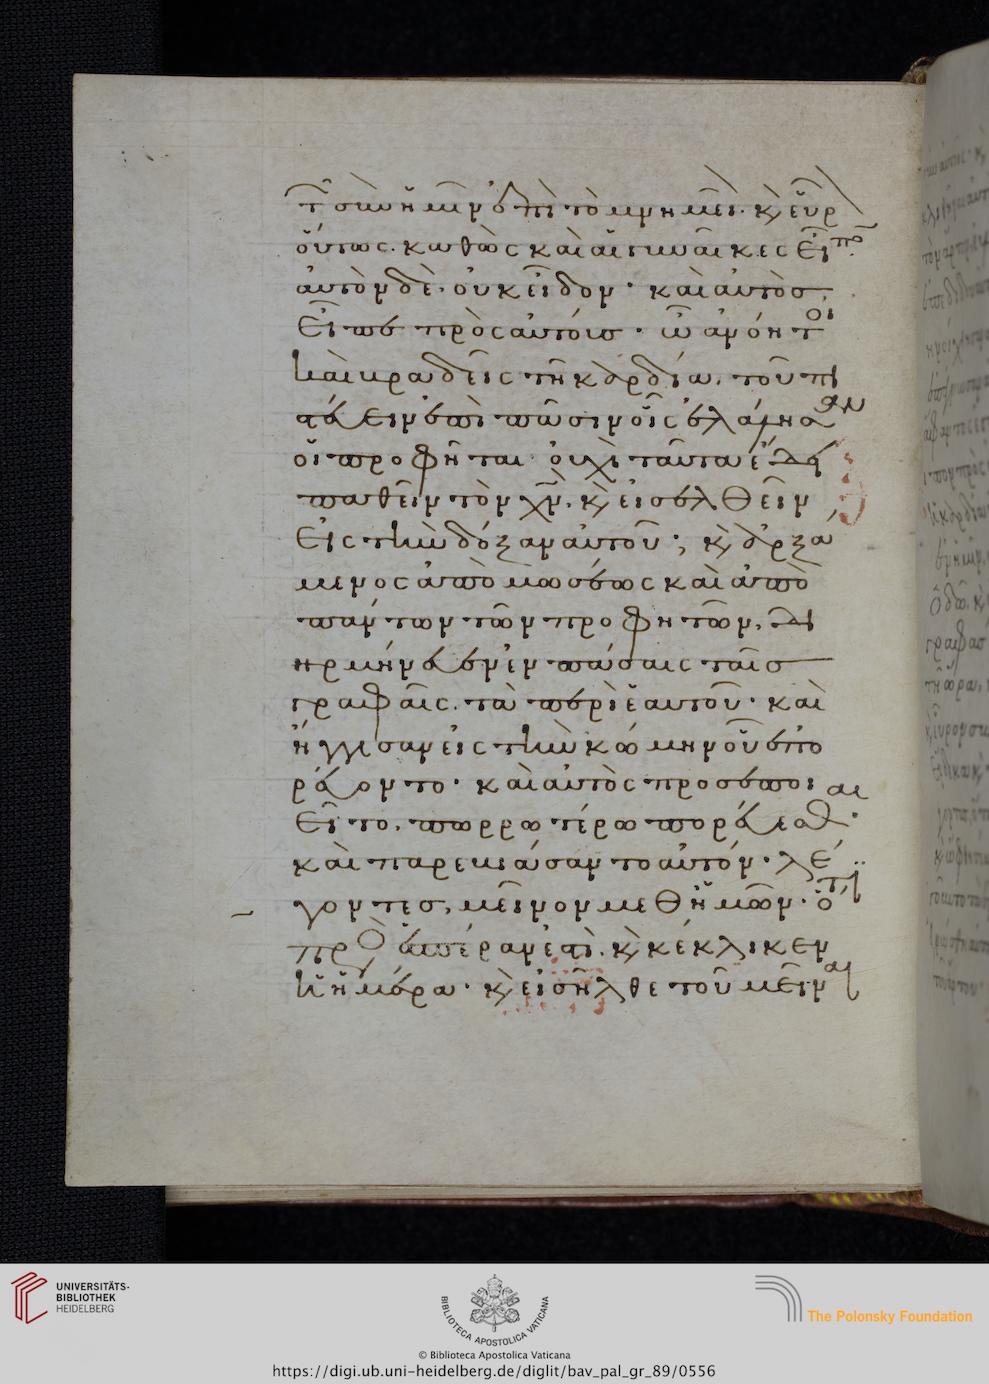 τ̅ σὺν ἡμῖν ἐπὶ τὸ μνημεῖ. κ̀ εὗρ
οὕτως. καθὼς καὶ αἱ γυναῖκες εἶπο̅.
αὐτὸν δὲ, οὐκ εἶδον· καὶ αὐτὸσ
εἶπε πρὸς αὐτοὺσ· ὦ ἀνόητοι
καὶ βραδεῖς τῆ καρδία, τοῦ πι
στεύειν ἐπὶ πᾶσιν οἷς ἐλάλησαν
οἱ προφῆται· οὐχὶ ταῦτα ἔδει
παθεῖν τὸν χ̅ν̅, κ̀ εἰσελθεῖν
εἰς τὴν δόξαν αὐτοῦ; κ̀ ἀρξά
μενος ἀπὸ μωσέως καὶ ἀπὸ
πάντων τῶν προφητῶν, δι
ηρμήνευεν ἐν πάσαις ταῖσ
γραφαῖς. τὰ περὶ ἑαυτοῦ· καὶ
ἤγγισαν εἰς τὴν κώμην οὗ ἐπο
ρεύοντο· καὶ αὐτὸς προσεποι
εῖτο, πορρωτέρω πορεύεσθαι·
καὶ παρεβιάσαντο αὐτόν· λέ
γοντεσ, μεῖνον μεθ ἡμῶν· ὅτι
πρὸ ἑσπέραν ἐστὶ. κ̀ κέκλικεν
ἡ ἡμέρα· κ̀ εἰσῆλθε τοῦ μεῖναι
UNIVERSITÄTS-
BIBLIOTHEK
HEIDELBERG
BIBLIOTECA APOSTOLICA VATICANA
The Polonsky Foundation
© Biblioteca Apostolica Vaticana
https://digi.ub.uni-heidelberg.de/diglit/bav_pal_gr_89/0556